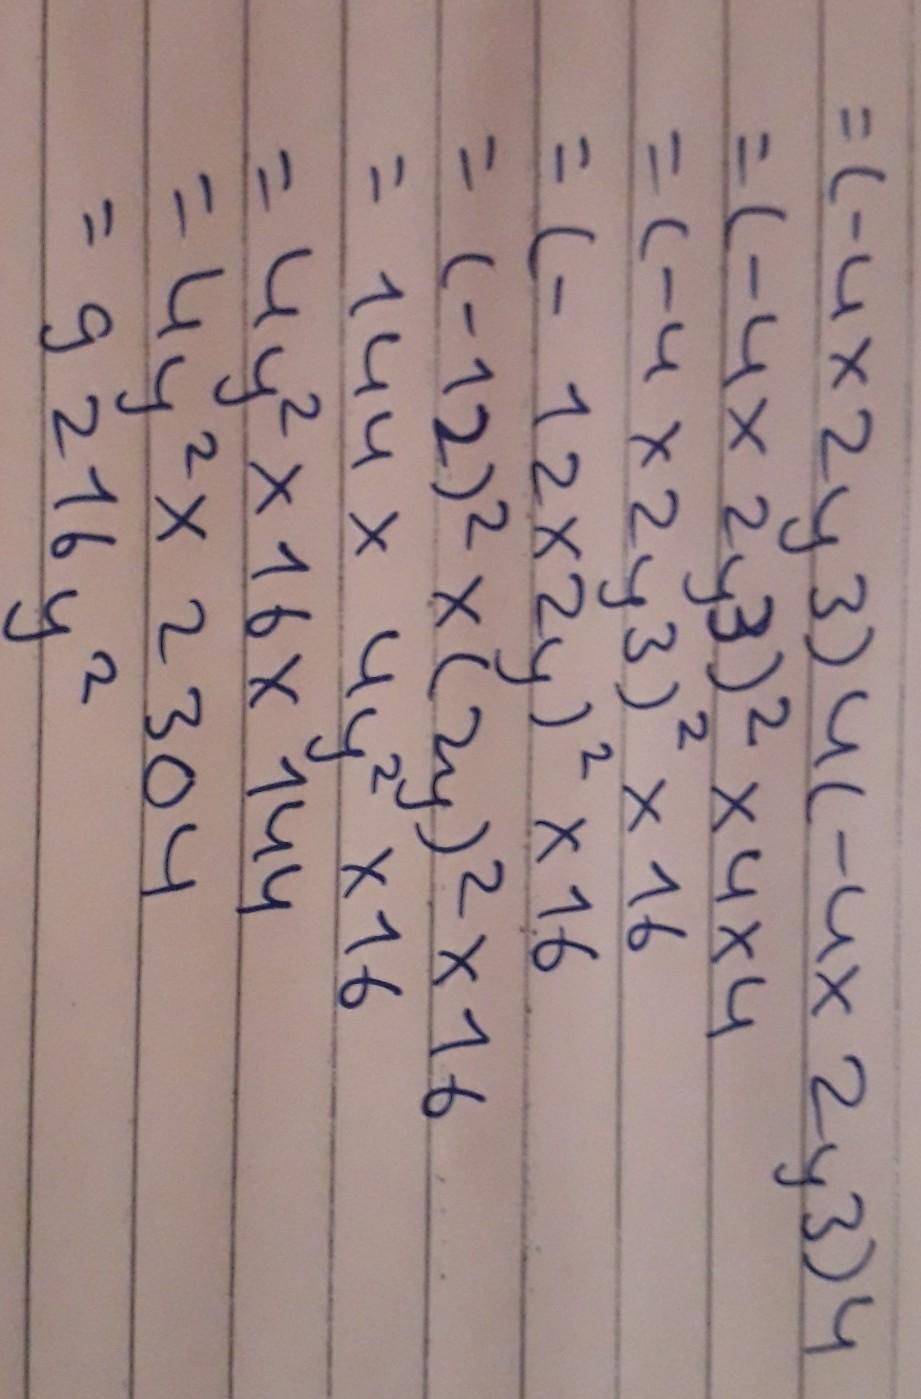 = (-4 x 2y 3) 4 (-4 x 2y 3) 4
= (-4 x 2y3)² x 4 x 4
= (-4 x 2y 3)² x 16
= (- 12 x 2y)² x 16
= (-12)² x (2y)² x 16
= 144 x 4y² x 16
= 4y² x 16 x 144
= 4y² x 2304
= 9216y²